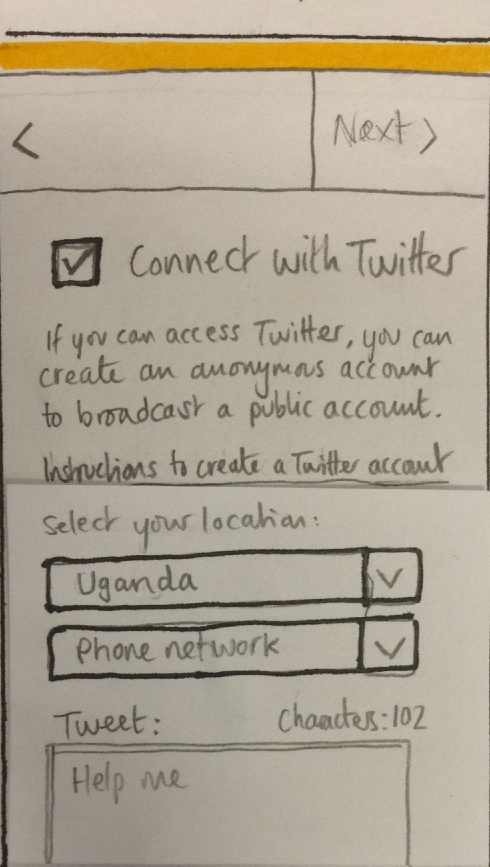 < Next >
Connect with Twitter
If you can access Twitter, you can
create an anonymous account
to broadcast a public account.
Instructions to create a Twitter account
Select your location:
Uganda
Phone network
Tweet: Characters: 102
Help me